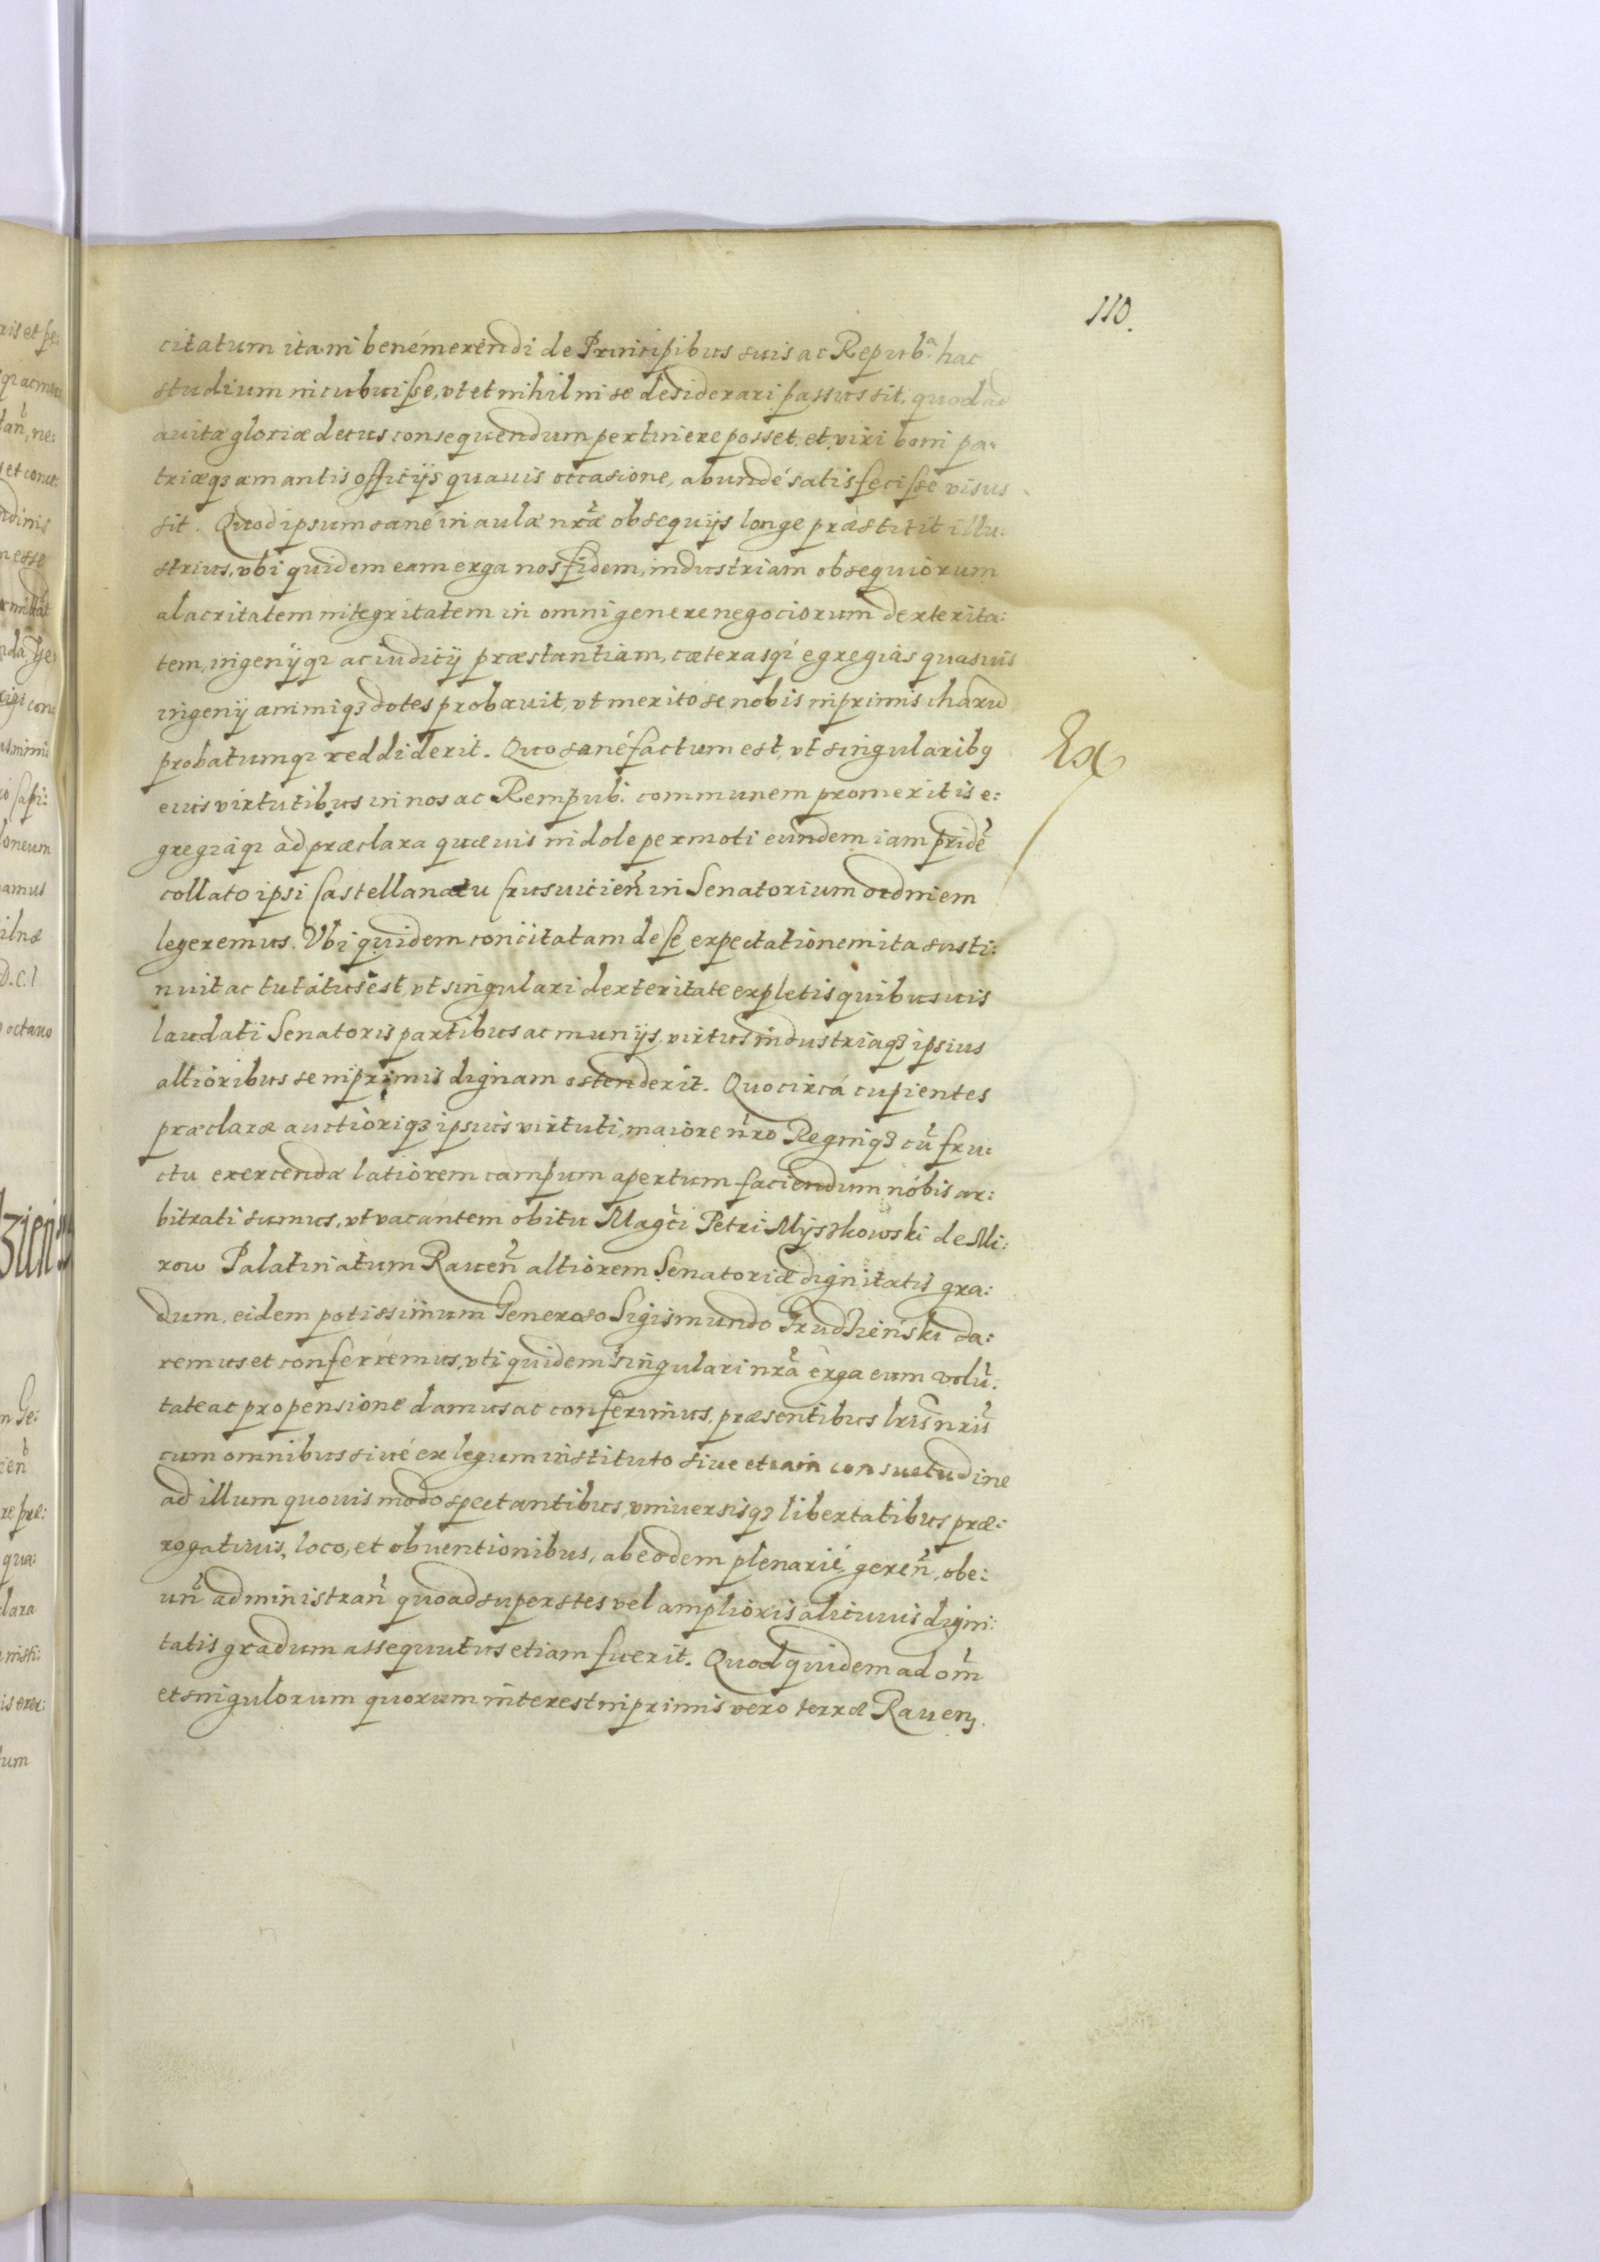 110.
citatum ita in bene merendi de Principibus suis ac Repub.ª hac
studium incubuisse, vt et nihil in se desiderari passus sit, quod ad
auitæ gloriæ decus consequendum pertinere posset, et viri boni pa:
triæq3 amantis officijs quauis occasione, abundé satisfecisse visus
sit. Quod ipsum sané in aulæ nrã obsequijs longe præstitit illu:
strius, vbi quidem eam erga nos fidem, industriam obsequiorum
alacritatem integritatem in omni genere negociorum dexterita:
tem, ingenijq3 ac iudicij præstantiam, cæterasq3 egregias quasuis
ingenij animiq3 dotes probauit, vt merito se nobis inprimis charũ
probatumq3 reddiderit. Quo sané factum est, vt singularibq
Ex
euis virtutibus in nos ac Rempub. communem promeritis e:
gregiáq3 ad præclara quæuis indole permoti eundem iam pridẽ
collato ipsi Castellanatu Crusuicieñ in Senatorium ordinem
legeremus. Vbi quidem concitatam de se expectationem ita susti:
nuit ac tutatus est, vt singulari dexteritate expletis quibusuis
laudati Senatoris partibus ac munijs, virtus industriaq3 ipsius
altioribus se inprimis dignam ostenderit. Quocircá cupientes
præclaræ auctioriq3 ipsius virtuti, maiore nrõ Regniq3 cũ fru:
ctu exercendæ latiorem campum apertum faciendum nobis ar:
bitrati sumus, vt vacantem obitu Magci Petri Myszkowski de Mi:
row Palatinatum Raueñ altiorem Senatoriæ dignitatis gra:
dum, eidem potissimum Generoso Sigismundo Grudzienski da:
remus et conferremus, vti quidem singulari nrã erga eum volũ:
tate ac propensione damus ac conferimus, præsentibus lris nris
cum omnibus siué ex legum instituto siue etiam consuetudine
ad illum quouis modo spectantibus, vniuersisq3 libertatibus præ:
rogatiuis, loco, et obuentionibus, ab eodem plenarié, gereñ, obe:
uñ administrañ quoad superstes vel amplioris alicuius digni:
tatis gradum assequutus etiam fuerit. Quod quidem ad om̃
et singulorum quorum interest inprimis vero terræ Rauen.